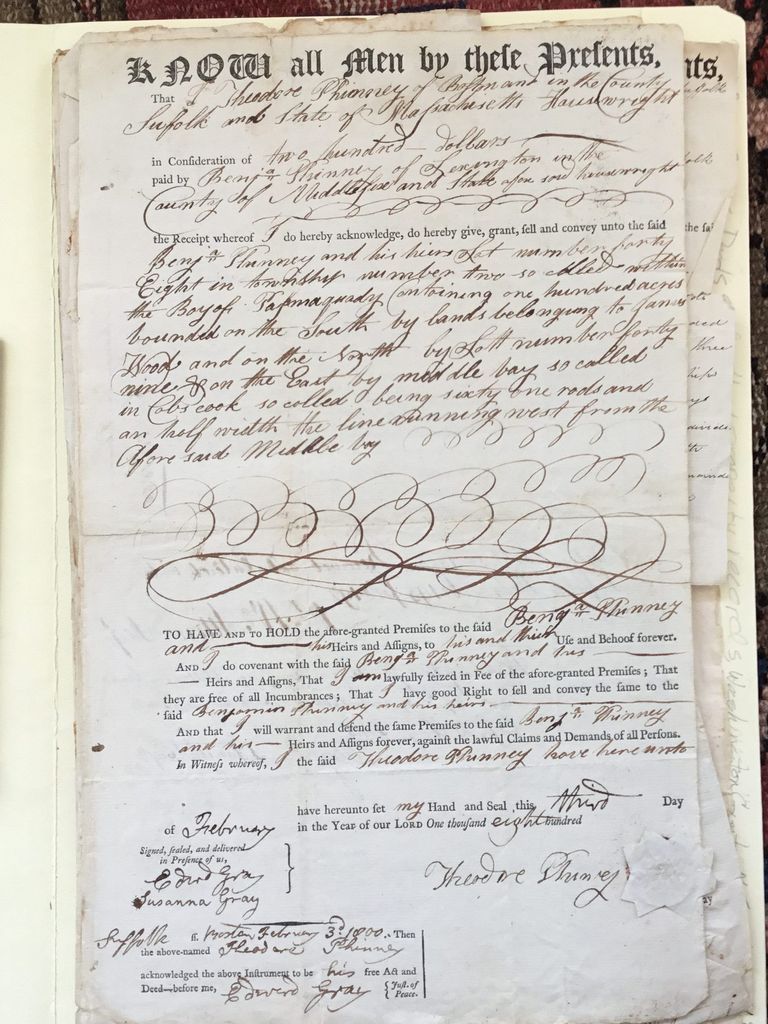 KNOW all Men by these Presents,
That I Theodore Phinney of Boston and in the County
Suffolk and State of Massachusetts Housewright
in Consideration of two hundred dollars
paid by Benjª Phinney of Lexington in the
County of Middlesex and State afore said housewright
the Receipt whereof I do hereby acknowledge, do hereby give, grant, sell and convey unto the said
Benjª Phinney and his heirs Lot number forty
Eight in township number two so called within
the Bay of Passmaquady Containing one hundred acres
bounded on the South by lands belonging to James
Wood and on the North by Lott number forty
nine & on the East by middle bay so called
in Cobscook so called being sixty one rods and
an half width the line running west from the
Afore said Middle bay
TO HAVE AND TO HOLD the afore-granted Premises to the said Benjª Phinney
and his Heirs and Assigns, to his and their Use and Behoof forever.
AND I do covenant with the said Benjª Phinney and his
Heirs and Assigns, That I am lawfully seized in Fee of the afore-granted Premises; That
they are free of all Incumbrances; That I have good Right to sell and convey the same to the
said Benjamin Phinney and his heirs
AND that I will warrant and defend the same Premises to the said Benjª Phinney
and his Heirs and Assigns forever, against the lawful Claims and Demands of all Persons.
In Witness whereof, I the said Theodore Phinney have here unto
have hereunto set my Hand and Seal this third Day
of February in the Year of our LORD One thousand eight hundred
Signed, sealed, and delivered
in Presence of us,
Edwd Gray
Susanna Gray
Theodore Phinney
Suffolk ss. Boston February 3d 1800. Then
the above-named Theodore Phinney
acknowledged the above Instrument to be his free Act and
Deed—before me, Edward Gray { Just. of
Peace.
nts,